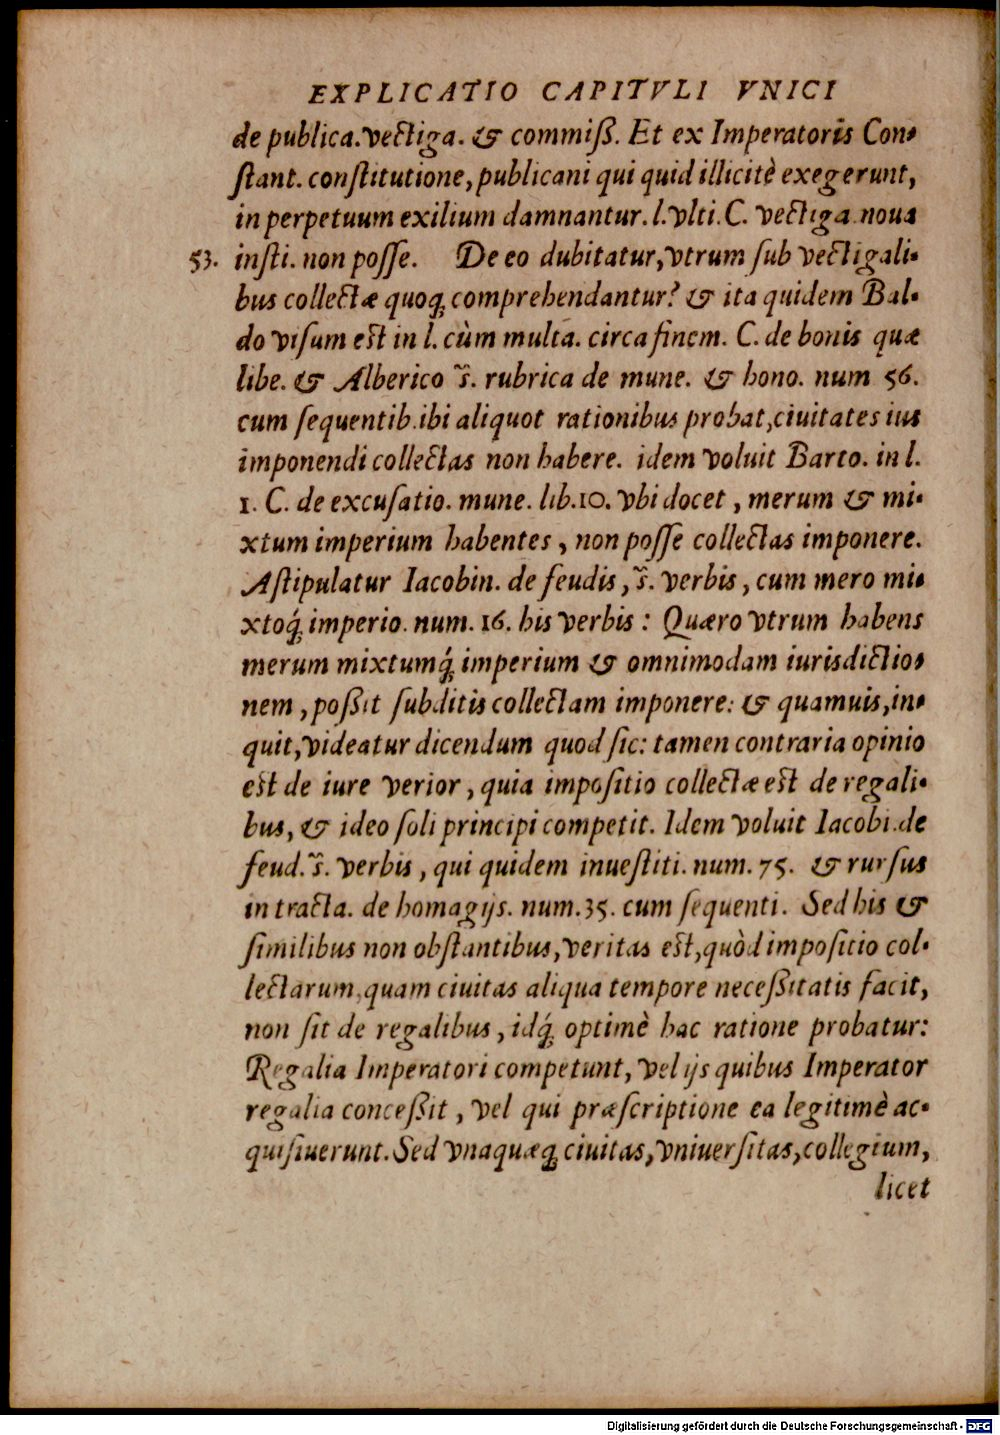 EXPLICATIO CAPITVLI VNICI
de publica.vectiga. & commiß. Et ex Imperatoris Con-
ſtant. conſtitutione, publicani qui quid illicitè exegerunt,
in perpetuum exilium damnantur. l.vlti.C. vectiga noua
53. inſti. non poſſe. De eo dubitatur,vtrum ſub vectigali-
bus collectæ quoq; comprehendantur? & ita quidem Bal-
do viſum est in l. cùm multa. circa finem. C. de bonis quæ
libe. & Alberico ſ̃. rubrica de mune. & hono. num 56.
cum ſequentib.ibi aliquot rationibus probat,ciuitates ius
imponendi collectas non habere. idem voluit Barto. in l.
1. C. de excuſatio. mune. lib.10. vbi docet, merum & mi-
xtum imperium habentes, non poſſe collectas imponere.
Aſtipulatur Iacobin. de feudis, ſ̃. verbis, cum mero mi-
xtoq́; imperio. num. 16. his verbis: Quæro vtrum habens
merum mixtumq́; imperium & omnimodam iurisdictio-
nem, poßit ſubditis collectam imponere: & quamuis,in-
quit,videatur dicendum quod ſic: tamen contraria opinio
est de iure verior, quia impoſitio collectæ est de regali-
bus, & ideo ſoli principi competit. Idem voluit Iacobi.de
feud. ſ̃. verbis, qui quidem inueſtiti. num. 75. & rurſus
in tracta. de homagijs. num.35. cum ſequenti. Sed his &
ſimilibus non obſtantibus,veritas est,quòd impoſitio col-
lectarum,quam ciuitas aliqua tempore neceßitatis facit,
non ſit de regalibus, idq́; optimè hac ratione probatur:
Regalia Imperatori competunt, vel ijs quibus Imperator
regalia conceßit, vel qui præſcriptione ea legitimè ac-
quiſiuerunt. Sed vnaquæq; ciuitas, vniuerſitas, collegium,
licet
Digitalisierung gefördert durch die Deutsche Forschungsgemeinschaft - DFG